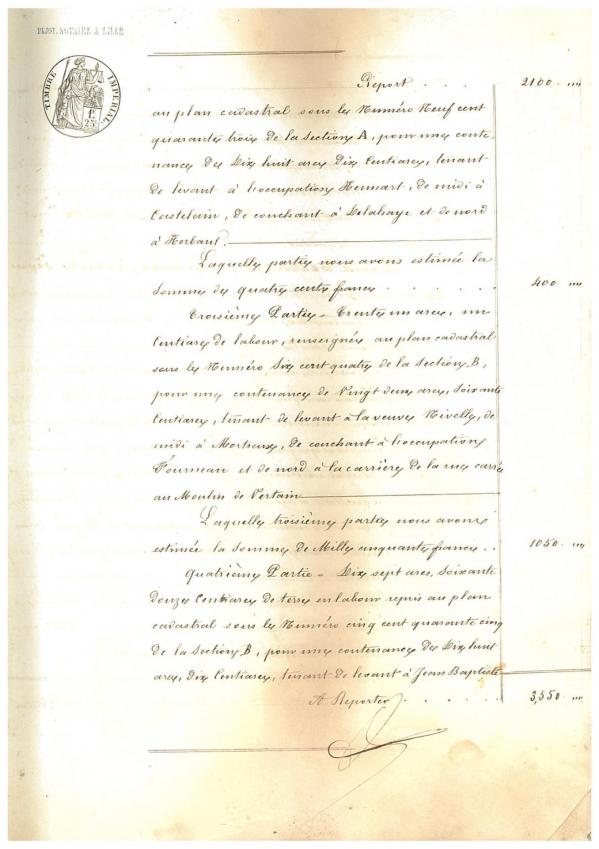 PAJOT, NOTAIRE A LILLE
TIMBRE IMPERIAL
1F.
25C.
Report . . . . 2100 . "" 
au plan cadastral sous le Numéro Neuf cent
quarante trois de la Section A, pour une conte-
nance de Dix huit ares Dix Centiares, tenant
de levant à l'occupation Hennart, de midi à
Castelain, de couchant à Delahaye et de nord
à Herbaut.
Laquelle partie nous avons estimée la
Somme de quatre cents francs . . . . . . 400 . ""
Troisième Partie = Trente un ares, un
Centiare de labour, renseignée au plan cadastral
sous le Numéro Six cent quatre de la Section B,
pour une contenance de Vingt deux ares, Soixante
Centiares, tenant de levant à la veuve Nivelly, de
midi à Mortreux, de couchant à l'occupation
Fourneau et de nord à la carrière de la rue carrée
au Moulin de Vertain
Laquelle troisième partie nous avons
estimée la Somme de Mille cinquante francs . . 1050 . ""
Quatrième Partie = Dix sept ares, Soixante
douze Centiares de terre en labour repris au plan
cadastral sous le Numéro cinq cent quarante cinq
de la Section B, pour une contenance de Dix huit
ares, dix Centiares, tenant de levant à Jean Baptiste
A Reporter . . . . . 3,550 . ""